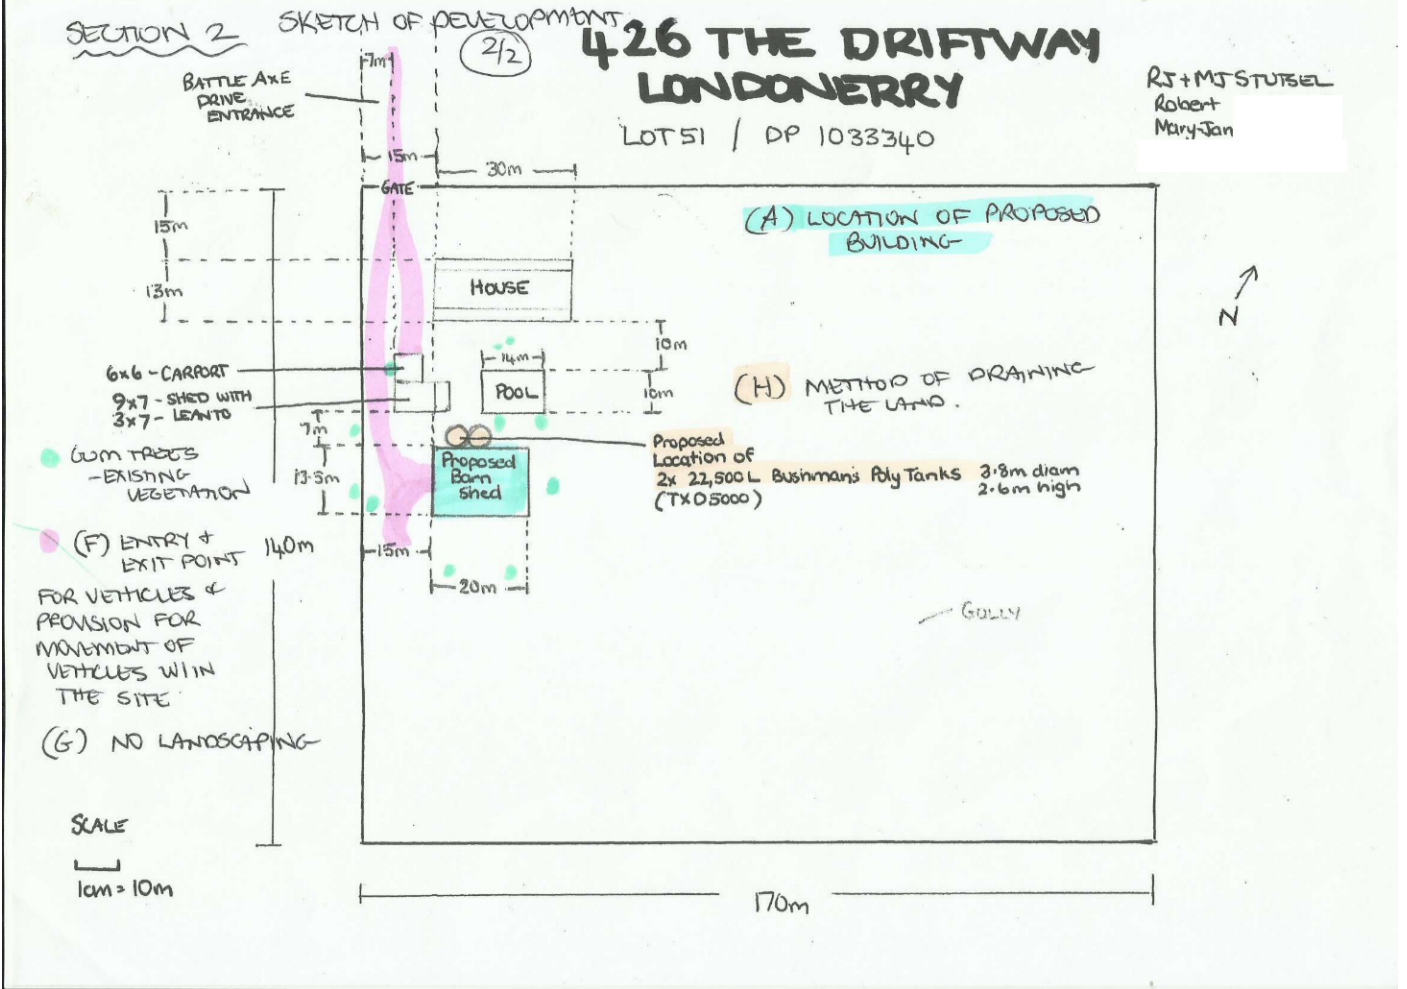 SECTION 2
SKETCH OF DEVELOPMENT
2/2
426 THE DRIFTWAY
LONDONERRY
LOT 51 / DP 1033340
RJ + MJ STUTSEL
Robert
Mary-Jan
7m
BATTLE AXE
DRIVE
ENTRANCE
15m
30m
GATE
(A) LOCATION OF PROPOSED
BUILDING
15m
13m
HOUSE
N
10m
14m
6x6 - CARPORT
9x7 - SHED WITH
3x7 - LEANTO
POOL
10m
(H) METHOD OF DRAINING
THE LAND.
7m
GUM TREES
- EXISTING
VEGETATION
13.5m
Proposed
Barn
Shed
Proposed
Location of
2x 22,500L Bushman's Poly Tanks 3.8m diam
(TXD5000) 2.6m high
(F) ENTRY +
EXIT POINT
FOR VEHICLES &
PROVISION FOR
MOVEMENT OF
VEHICLES W/IN
THE SITE
140m
15m
20m
GULLY
(G) NO LANDSCAPING
SCALE
1cm = 10m
170m